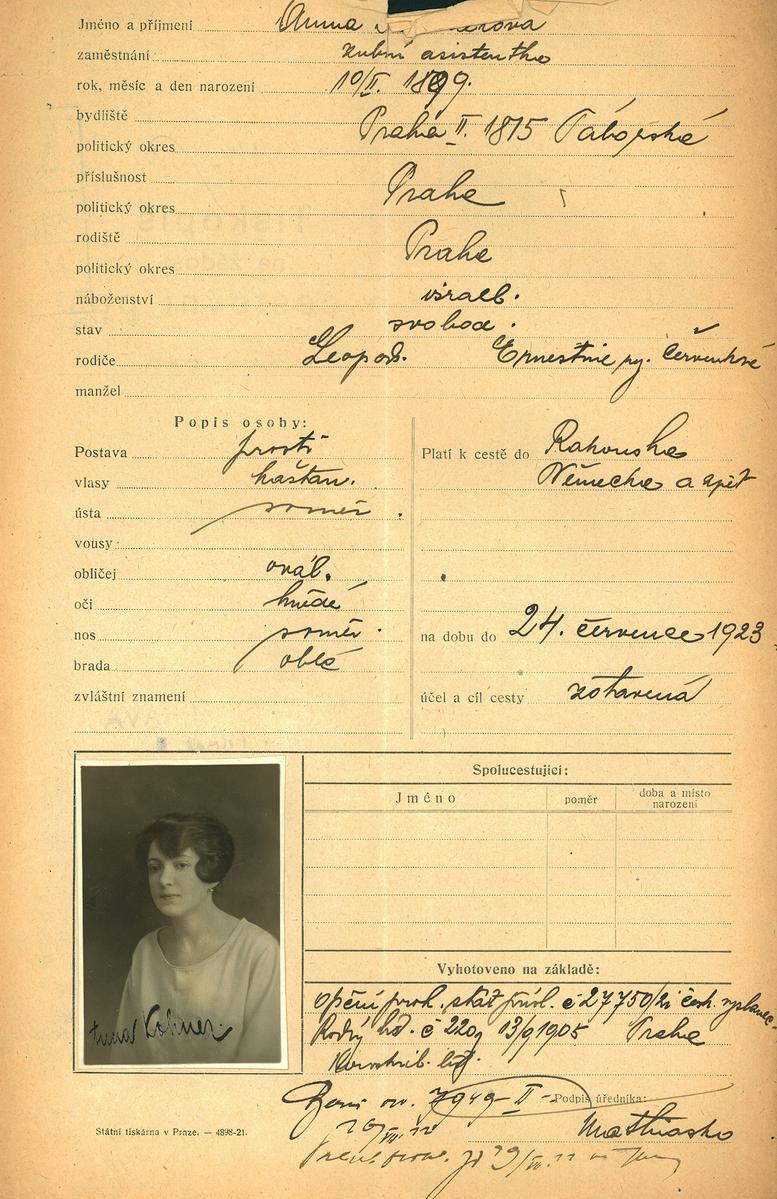 Jméno a příjmení Anna
zaměstnání zubní asistentka
rok, měsíc a den narození 10/II. 1899.
bydliště Praha II. 1815 Táborská
politický okres
příslušnost Praha
politický okres
rodiště Praha
politický okres
náboženství israel.
stav svobod.
rodiče Leopold. Ernestine, roz. Červenkové
manžel
Popis osoby:
Postava prostř
vlasy kaštan.
ústa souměr.
vousy
obličej ovál.
oči hnědé
nos souměr.
brada oblá
zvláštní znamení
Platí k cestě do Rakouska
Německa a zpět
na dobu do 24. července 1923
účel a cíl cesty zotavená
Spolucestující:
Jméno poměr doba a místo
narození
Vyhotoveno na základě:
č 27750/21 česk.
Rodný list. č 220 13/9 1905 Praha
Podpis úředníka:
Anna Lohner
Státní tiskárna v Praze. — 4898-21.